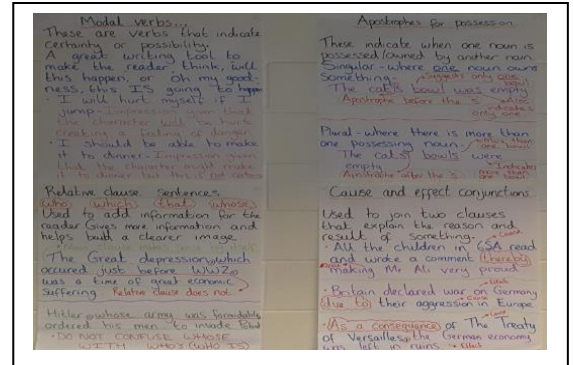 Modal verbs...
These are verbs that indicate
certainty or possibility.
A great writing tool to
make the reader think, will
this happen, or oh my good-
ness, this IS going to happen
• I will hurt myself if I
jump - Impression given that
the character will be hurt
creating a feeling of danger.
• I should be able to make
it to dinner - Impression given
that the character must make
it to dinner but this is not
Relative clause sentences
(who) (which) (that) (whose)
Used to add information for the
reader Gives more information and
helps build a clearer image.
The Great depression, which
occured just before WW2,
was a time of great economic
suffering. Relative clause does not
Hitler, whose army was formidable,
ordered his men to invade
• DO NOT CONFUSE WHOSE
WITH WHO'S (WHO IS)
Apostrophes for possession
These indicate when one noun is
possessed/owned by another noun
Singular - where one noun owns
something. Suggests only one
bowl
The cat's bowl was empty
Apostrophe before the s Also
indicates
only one
Plural - where there is more than
one possessing noun. more than
one bowl
The cats' bowls were
empty Indicates
more than
one bowl
Apostrophe after the s
Cause and effect conjunctions
Used to join two clauses
that explain the reason and
result of something. Cause
• All the children in 6SA read
and wrote a comment thereby
making Mr Ali very proud
Effect
• Britain declared war on Germany
due to their aggression in Europe.
Cause
Cause
• As a consequence of The Treaty
of Versailles, the German economy
was left in ruins Effect